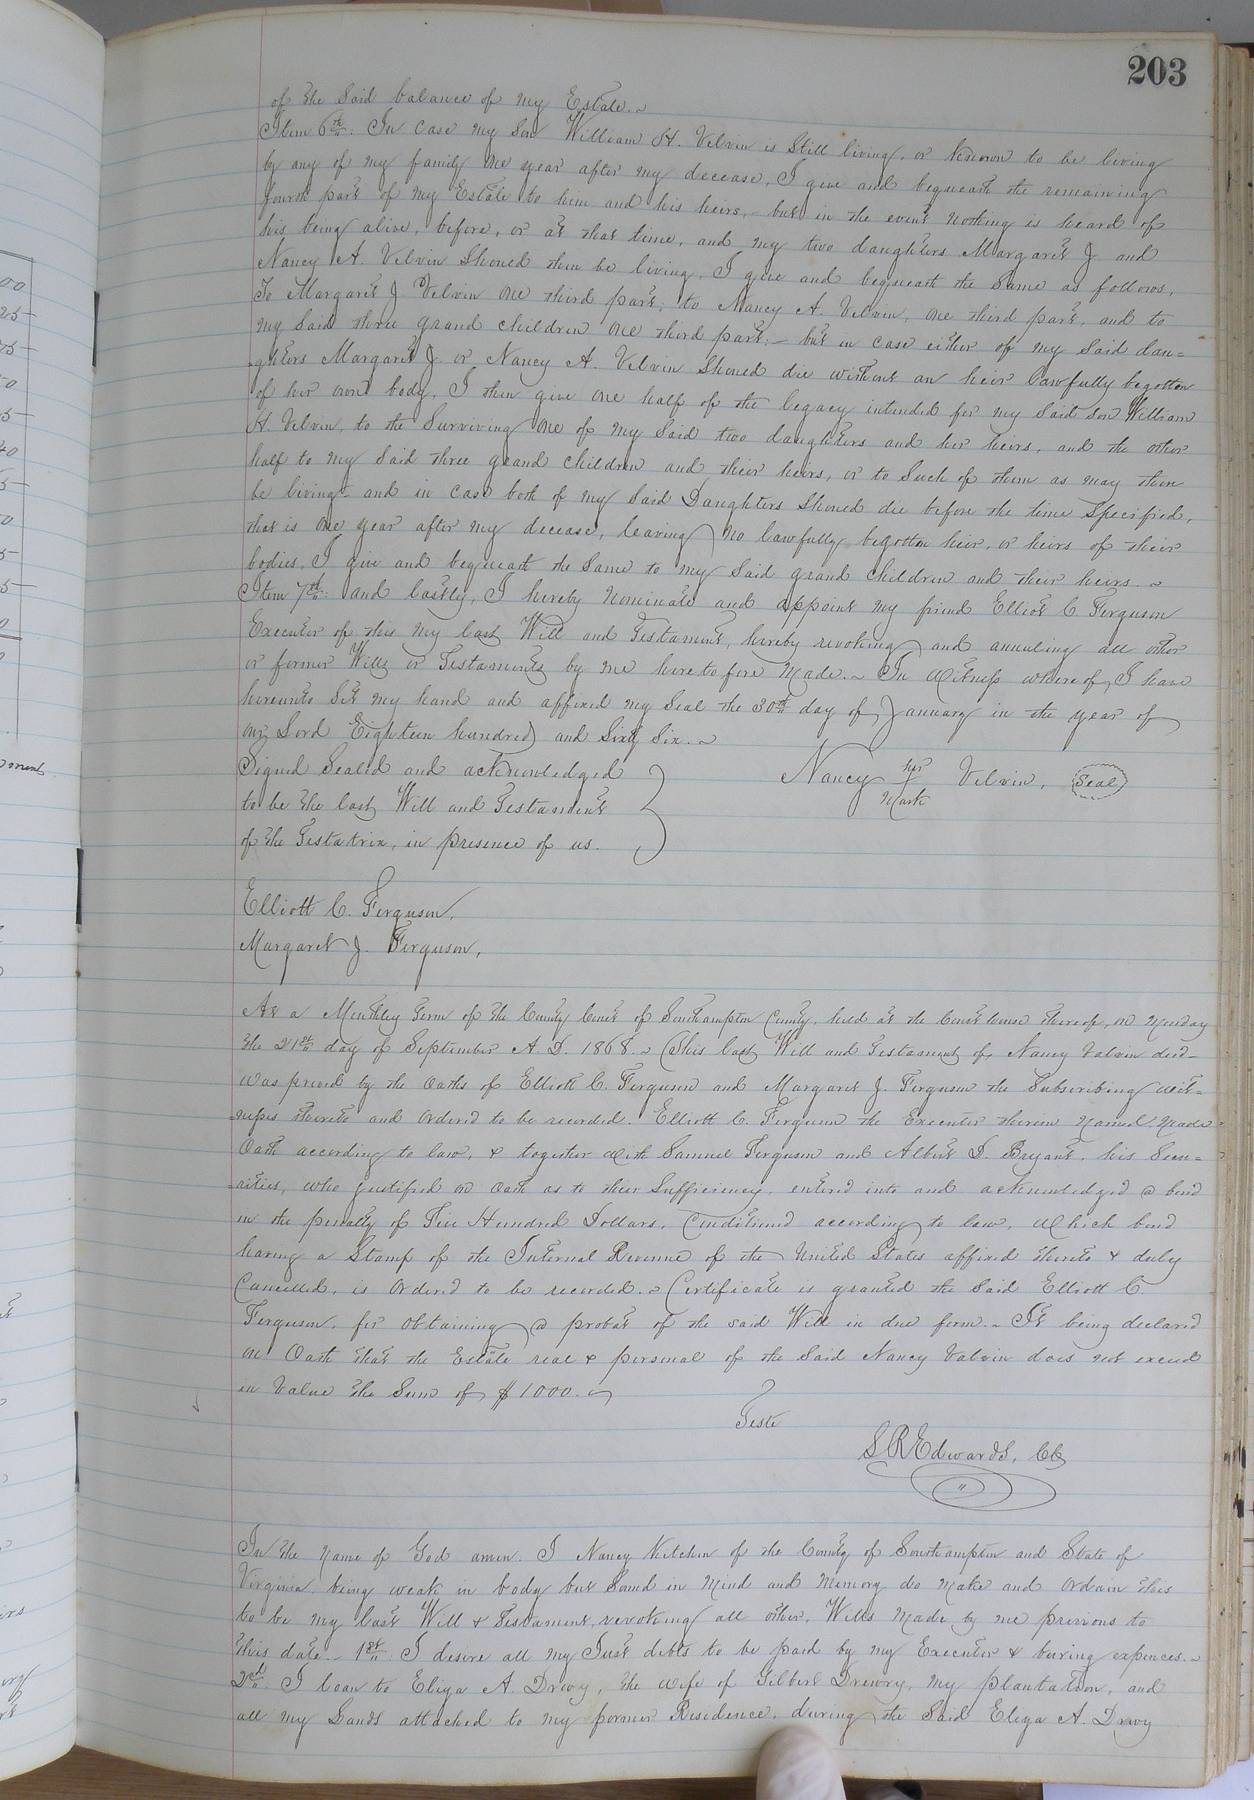 203
of the Said balance of my Estate. ~
Item 6th: In Case my Son William H. Velvin is Still living, or Known to be living
by any of my family one year after my decease, I give and bequeath the remaining
fourth part of my Estate to him and his heirs, - but in the event Nothing is heard of
his being alive, before, or at that time, and my two daughters Margaret J. and
Nancy A Velvin Should then be living, I give and bequeath the Same as follows,
To Margaret J Velvin one third part; to Nancy A. Velvin, one third part, and to
my Said three grand children one third part; - but in case either of my Said dau=
ghters Margaret J. or Nancy A. Velvin Should die without an heir lawfully begotten
of her own body, I then give one half of the legacy intended for my Said Son William
H. Velvin, to the Surviving one of my Said two daughters and her heirs, and the other
half to my Said three grand children and their heirs, or to Such of them as may then
be living - and in case both of my Said Daughters Should die before the time Specified,
that is one year after my decease, leaving no lawfully begotten heir, or heirs of their
bodies, I give and bequeath the Same to my Said grand children and their heirs. ~
Item 7th: and lastly, I hereby Nominate and appoint my friend Elliot C. Ferguson
Executor of this my last Will and Testament, hereby revoking and annuling all other
or former Wills or Testaments by me heretofore Made. ~ In Witness whereof, I have
hereunto Set my hand and affixed my Seal the 30th day of January in the year of
our Lord Eighteen hundred and Sixty Six. ~
Signed Sealed and acknowledged
to be the last Will and Testament
of the Testatrix, in presence of us.
Nancy her + mark Velvin, Seal
Elliott C. Ferguson,
Margaret J. Ferguson,
At a Monthly Term of the County Court of Southampton County, held at the Courthouse thereof, on Monday
the 21st day of September A D. 1868. ~ This last Will and Testament of Nancy Valvin decd-
was proved by the oaths of Elliott C. Ferguson and Margaret J. Ferguson the Subscribing wit=
nesses thereto and ordered to be recorded. Elliott C. Ferguson the Executor therein Named, Made
Oath according to law, & together with Samuel Ferguson and Albert D. Bryant, his Secu=
rities, who justified on oath as to their Sufficiency, entered into and acknowledged a bond
in the penalty of Five Hundred Dollars, Conditioned according to law, which bond
having a Stamp of the Internal Revenue of the United States affixed thereto & duly
Cancelled, is ordered to be recorded. ~ Certificate is granted the Said Elliott C.
Ferguson, for obtaining a probat of the said Will in due form. ~ It being declared
on Oath that the Estate real & personal of the Said Nancy Valvin does not exceed
in Value the Sum of $1000. ~
Teste
S R Edwards, CC
In the Name of God amen. I Nancy Kitchen of the County of Southampton and State of
Virginia, being weak in body but Sound in Mind and Memory do Make and Ordain this
to be my last Will & Testament, revoking all other, Wills Made by me previous to
this date - 1st I desire all my Just debts to be paid by my Executor & buring expences. ~
2nd I loan to Eliza A. Drewy, the wife of Gilbert Drewry, my plantation, and
all my Lands attached to my former Residence, during the Said Eliza A. Drewy